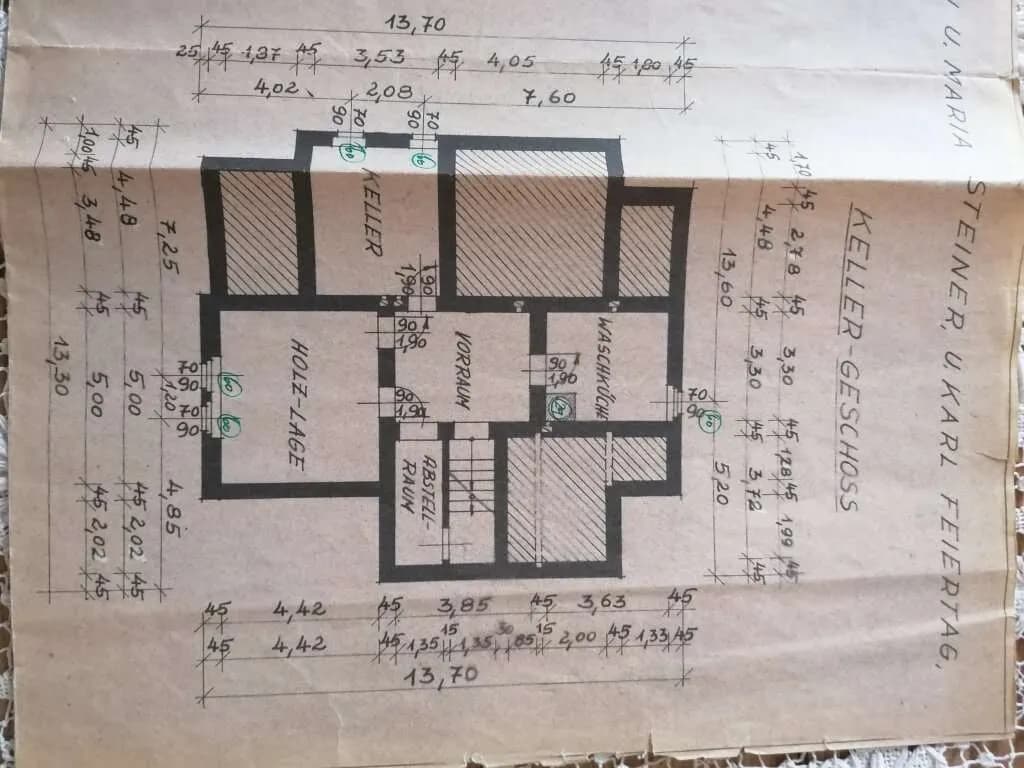 U. MARIA STEINER, U. KARL FEIERTAG,
KELLER-GESCHOSS
13,70
25 45 1,37 45 3,53 45 4,05 45 1,80 45
4,02 2,08 7,60
90 70 90 70
60 60
KELLER
90
1,90
HOLZ-LAGE
VORRAUM
WASCHKÜCHE
ABSTELL-
RAUM
90
1,90
90
1,90
90
1,90
70
90
1,20
70
90
60
60
70
90
60
1,70 45 2,78 45 3,30 45 1,28 45 1,99 45
45 4,48 45 3,30 45 3,72 45
13,60 5,20
7,25 4,85
45 4,48 45 5,00 45 2,02 45
1,00 45 3,48 45 5,00 45 2,02 45
13,30
45 4,42 45 3,85 45 3,63 45
45 4,42 45 1,35 15 1,35 30 85 15 2,00 45 1,33 45
13,70